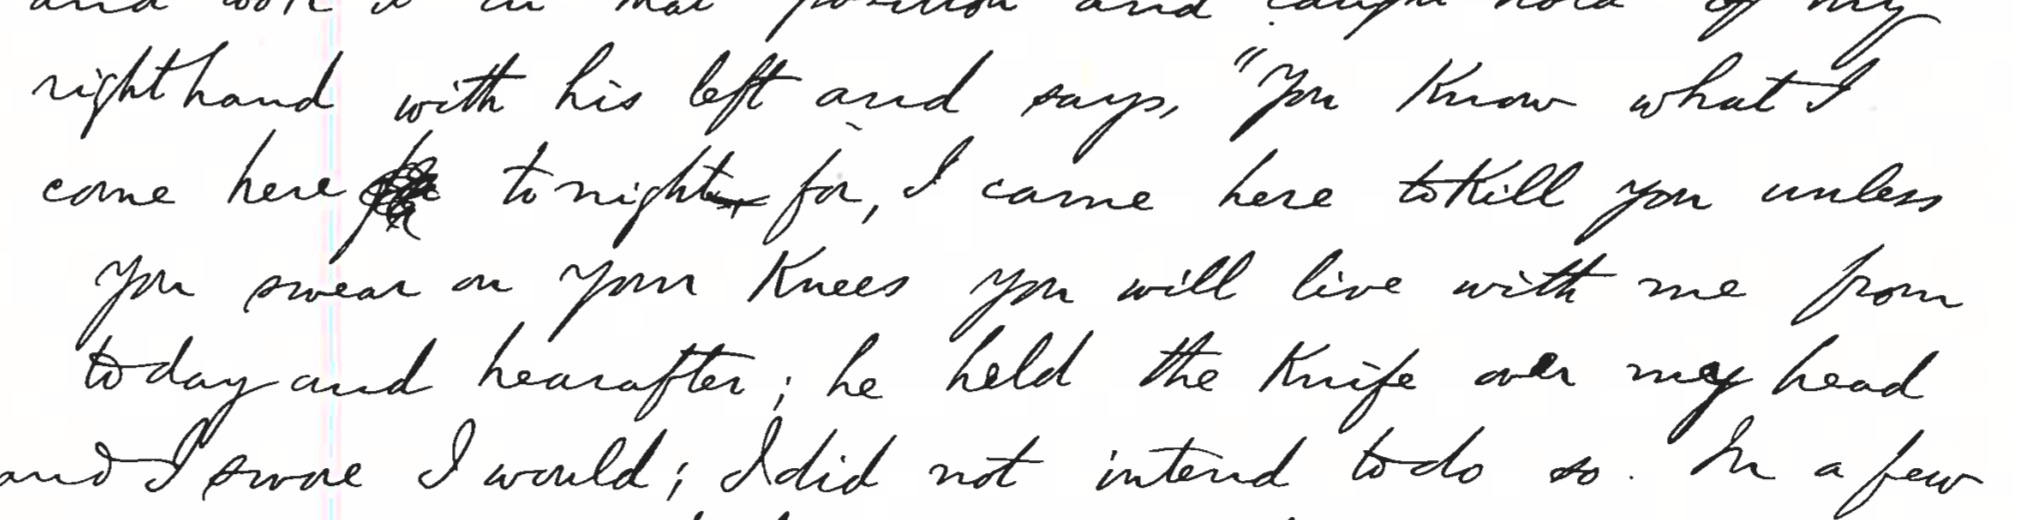 and took it in that position and caught hold of my
right hand with his left and says, "You Know what I
come here to night for, I came here to Kill you unless
you swear on your Knees you will live with me from
to day and hearafter; he held the Knife over my head
and I swore I would; I did not intend to do so. In a few